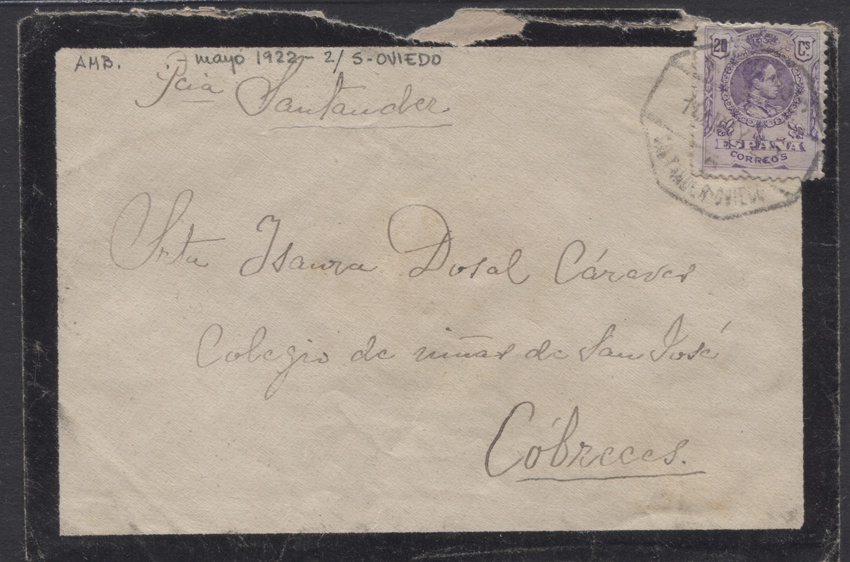 AMB. 7- mayo 1922 - 2/ S-OVIEDO
Pcia Santander
20 Cs
ESPAÑA
CORREOS
SANTANDER-OVIEDO
Srta Isaura Dosal Cáraves
Colegio de niñas de San José
Cóbreces.